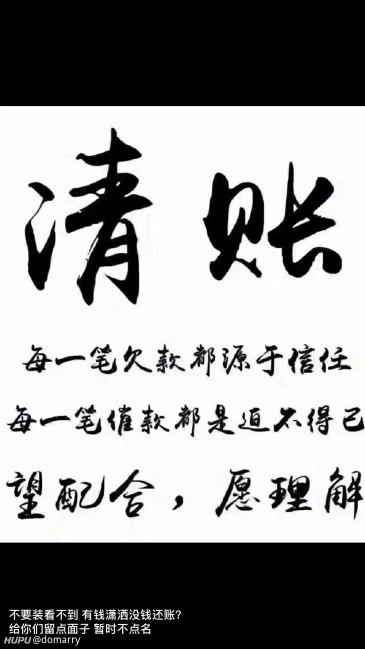 清账
每一笔欠款都源于信任
每一笔催款都是迫不得已
望配合，愿理解
不要装看不到 有钱潇洒没钱还账?
给你们留点面子 暂时不点名
HUPU @domarry